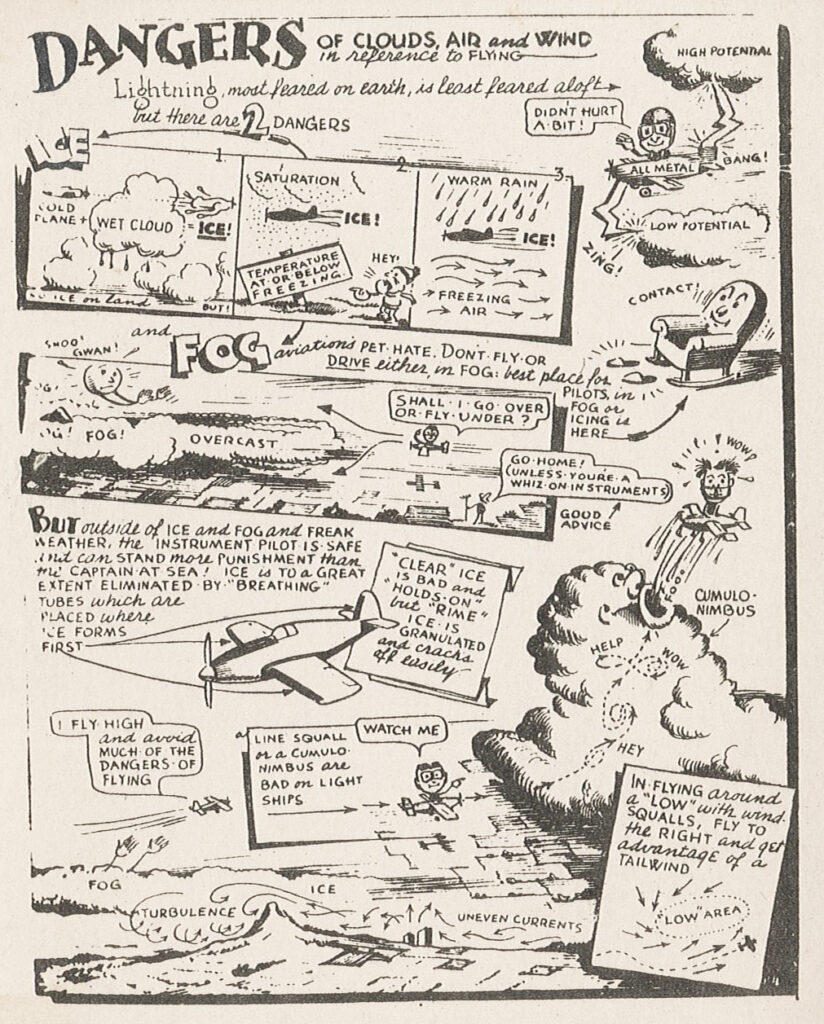 DANGERS OF CLOUDS, AIR and WIND
in reference to FLYING
Lightning, most feared on earth, is least feared aloft
but there are 2 DANGERS
HIGH POTENTIAL
DIDN'T HURT
A·BIT!
ALL METAL
BANG!
LOW POTENTIAL
ZING!
ICE
1.
COLD
PLANE +
WET CLOUD
= ICE!
ICE on Land
BUT!
2.
SATURATION
ICE!
TEMPERATURE
AT·OR·BELOW
FREEZING.
HEY!
3.
WARM RAIN
ICE!
FREEZING
AIR
CONTACT!
and
FOG aviation's PET·HATE. DON'T·FLY·OR
DRIVE either, in FOG: best place for
PILOTS, in
FOG or
ICING is
HERE
SHOO!
GWAN!
FOG!
OVERCAST
SHALL·I·GO·OVER
OR·FLY·UNDER?
GO·HOME!
(UNLESS·YOU'RE·A
WHIZ·ON·INSTRUMENTS)
GOOD
ADVICE
WOW!
BUT outside of ICE and FOG and FREAK
WEATHER, the INSTRUMENT PILOT·IS·SAFE
and can STAND more PUNISHMENT than
the CAPTAIN·AT·SEA! ICE is TO·A·GREAT
EXTENT ELIMINATED·BY·"BREATHING"
TUBES which are
PLACED where
ICE FORMS
FIRST
"CLEAR" ICE
IS BAD and
"HOLDS·ON"
but "RIME"
ICE·IS
GRANULATED
and cracks
off easily
CUMULO-
NIMBUS
HELP
WOW
HEY
I FLY HIGH
and avoid
MUCH OF THE
DANGERS·OF
FLYING
LINE SQUALL
or a CUMULO-
NIMBUS are
BAD on LIGHT
SHIPS
WATCH ME
IN·FLYING around
a "LOW" with wind·
SQUALLS, FLY TO
the RIGHT and get
advantage of a
TAILWIND
"LOW" AREA
FOG
ICE
TURBULENCE
UNEVEN CURRENTS